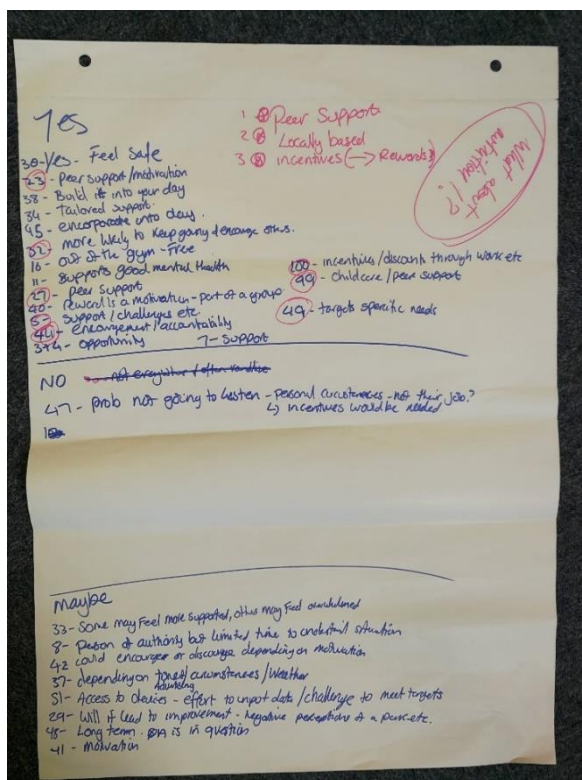 Yes
1 Peer Support
2 Locally based
3 incentives (→ Rewards)
What about nutrition!?
30 - Yes - Feel safe
23 - Peer support/motivation
38 - Build it into your day
34 - Tailored support.
45 - encorporate into day.
32 - more likely to keep going / encourage others.
16 - out of the gym - Free
11 - supports good mental health
27 - Peer support
40 - reward is a motivation - part of a group
5 - support/challenges etc
44 - encouragement/accountability
3+4 - opportunity
7 - support
100 - incentives/discounts through work etc
99 - childcare/peer support
49 - targets specific needs
NO
47 - prob not going to listen - personal circumstances - not their job?
↳ incentives would be needed
maybe
33 - Some may feel more supported, others may feel overwhelmed
8 - Person of authority but limited time to understand situation
42 could encourage or discourage depending on motivation
37 - depending on circumstances/weather
advertising
51 - Access to devices - effort to input data/challenge to meet targets
29 - Will it lead to improvement - negative perceptions of a park etc.
48 - Long term. PA is in question
41 - motivation